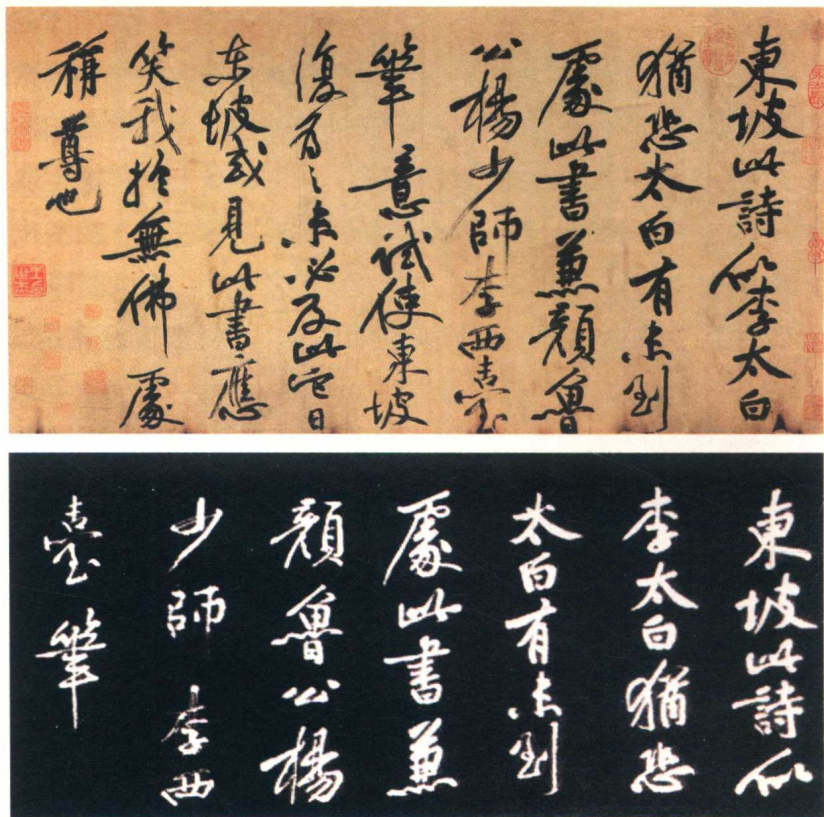 東坡此詩似李太白
猶恐太白有未到
處此書兼顏魯
公楊少師李西臺
筆意試使東坡
復爲之未必及此它日
东坡或見此書應
笑我於無佛處
稱尊也
東坡此詩似
李太白猶恐
太白有未到
處此書兼
顏魯公楊
少師李西
臺筆